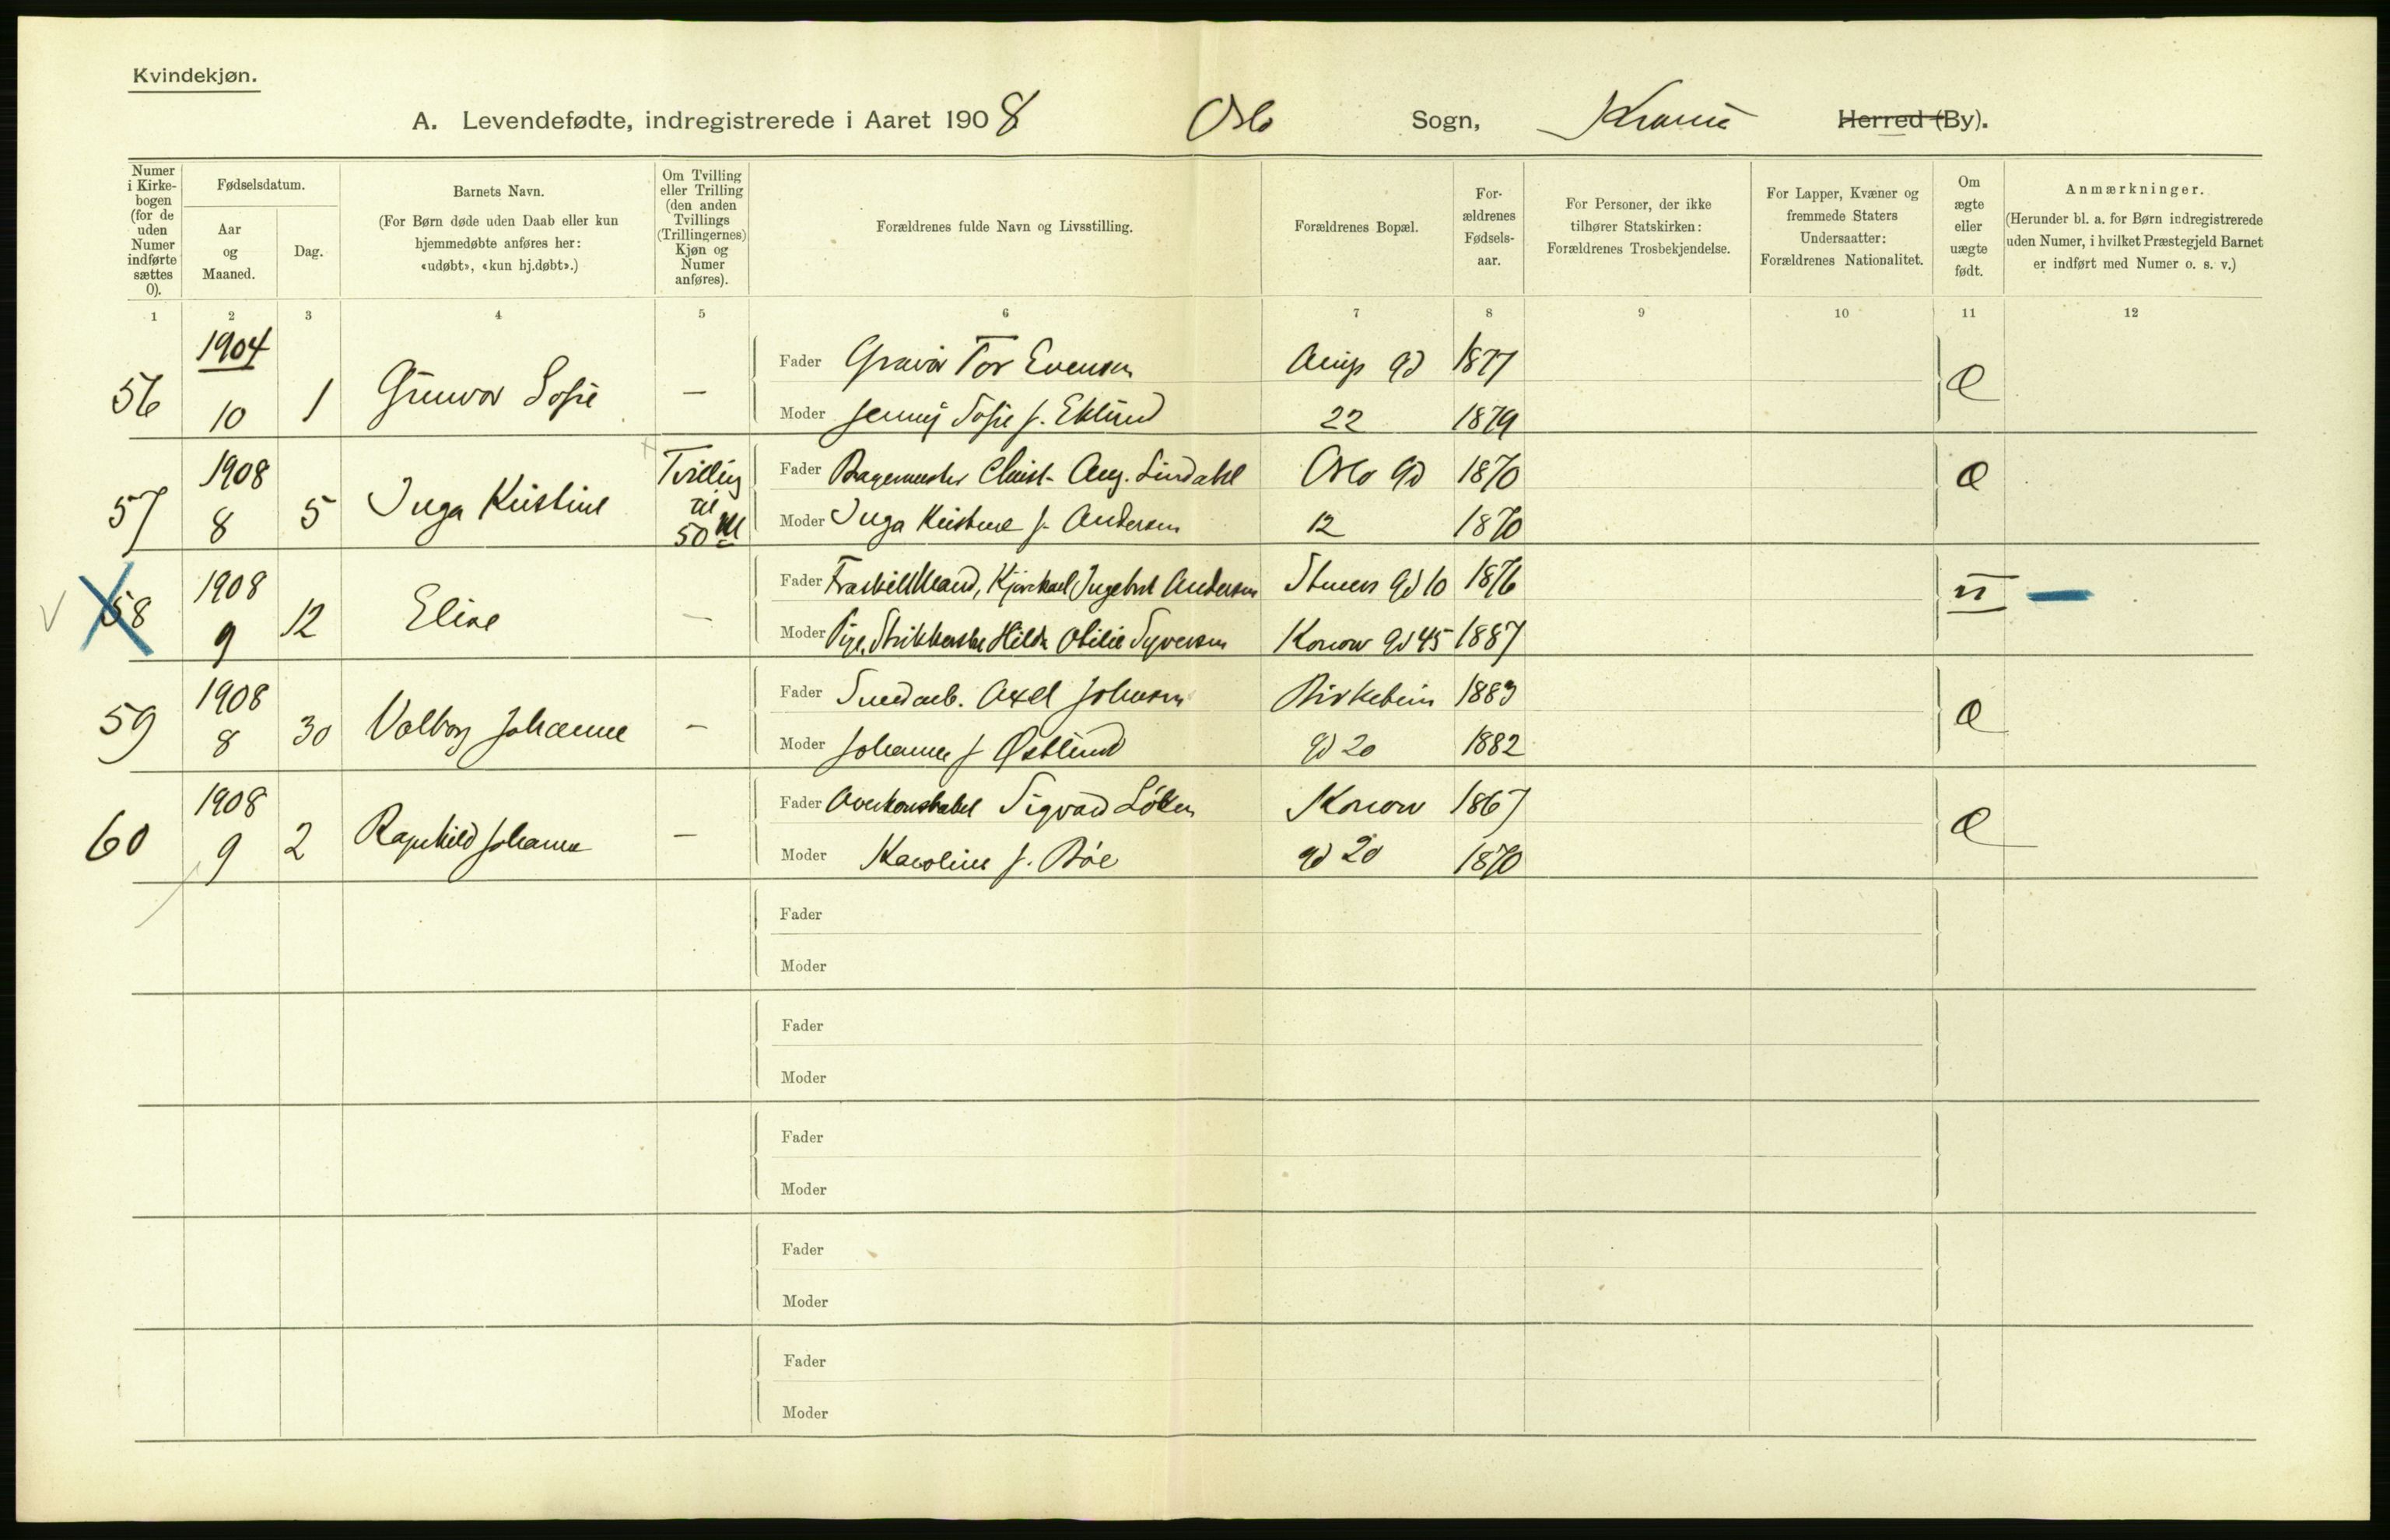 Kvindekjøn.
A. Levendefødte, indregistrerede i Aaret 1908 Oslo Sogn, Krania Herred (By).
Numer i Kirke-bogen (for de uden Numer indførte sættes 0).
Fødselsdatum.
Aar og Maaned.
Dag.
Barnets Navn.
(For Børn døde uden Daab eller kun hjemmedøbte anføres her: «udøbt», «kun hj.døbt».)
Om Tvilling eller Trilling (den anden Tvillings (Trillingernes) Kjøn og Numer anføres).
Forældrenes fulde Navn og Livsstilling.
Forældrenes Bopæl.
For-ældrenes Fødsels-aar.
For Personer, der ikke tilhører Statskirken: Forældrenes Trosbekjendelse.
For Lapper, Kvæner og fremmede Staters Undersaatter: Forældrenes Nationalitet.
Om ægte eller uægte født.
Anmærkninger.
(Herunder bl. a. for Børn indregistrerede uden Numer, i hvilket Præstegjeld Barnet er indført med Numer o. s. v.)
1 2 3 4 5 6 7 8 9 10 11 12
1904
56 10 1 Gunvor Sofie —
Fader Gravør Tor Evensen gd 1877
Moder Jenny Sofie f. Eklund 22 1879
Æ
1908
57 8 5 Inga Kristine Tvilling til 50 M
Fader Bagermester Christ. Aug. Lindahl Oslo gd 1870
Moder Inga Kristine f. Andersen 12 1870
Æ
1908
58 9 12 Elise —
Fader Ingebret Andersen gd 10 1876
Moder Pige, Strikkerske Hilda Otilie Syversen Konow gd 45 1887
u —
1908
59 8 30 Valborg Johanne —
Fader Smedarb. Axel Johnsen Birkebein 1883
Moder Johanne f Østlund gd 20 1882
Æ
1908
60 9 2 Ragnhild Johanne —
Fader Overkonstabel Sigvard Løken Konow 1867
Moder Karoline f. Bøe gd 20 1870
Æ
Fader
Moder
Fader
Moder
Fader
Moder
Fader
Moder
Fader
Moder